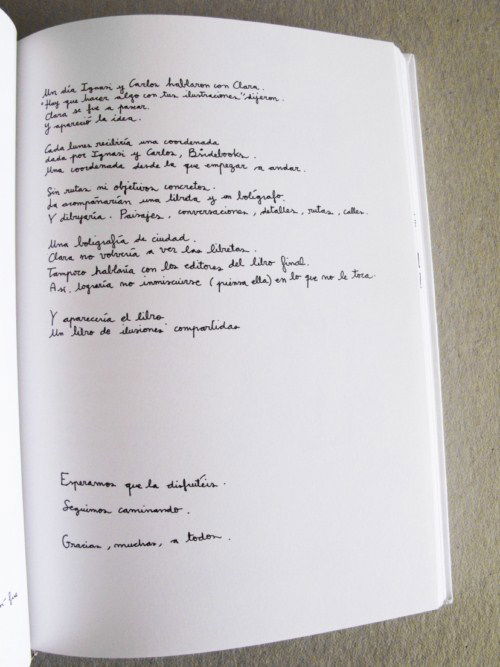 Un día Ignasi y Carlos hablaron con Clara.
"Hay que hacer algo con tus ilustraciones" dijeron.
Clara se fue a pasear.
Y apareció la idea.
Cada lunes recibiría una coordenada
dada por Ignasi y Carlos, Bindebooks.
Una coordenada desde la que empezar a andar.
Sin rutas ni objetivos concretos.
La acompañarían una libreta y un bolígrafo.
Y dibujaría. Paisajes, conversaciones, detalles, rutas, calles.
Una boligrafía de ciudad.
Clara no volvería a ver las libretas.
Tampoco hablaría con los editores del libro final.
Así lograría no inmiscuirse (piensa ella) en lo que no le toca.
Y aparecería el libro
Un libro de ilusiones compartidas
Esperamos que la disfrutéis.
Seguimos caminando.
Gracias, muchas, a todos.